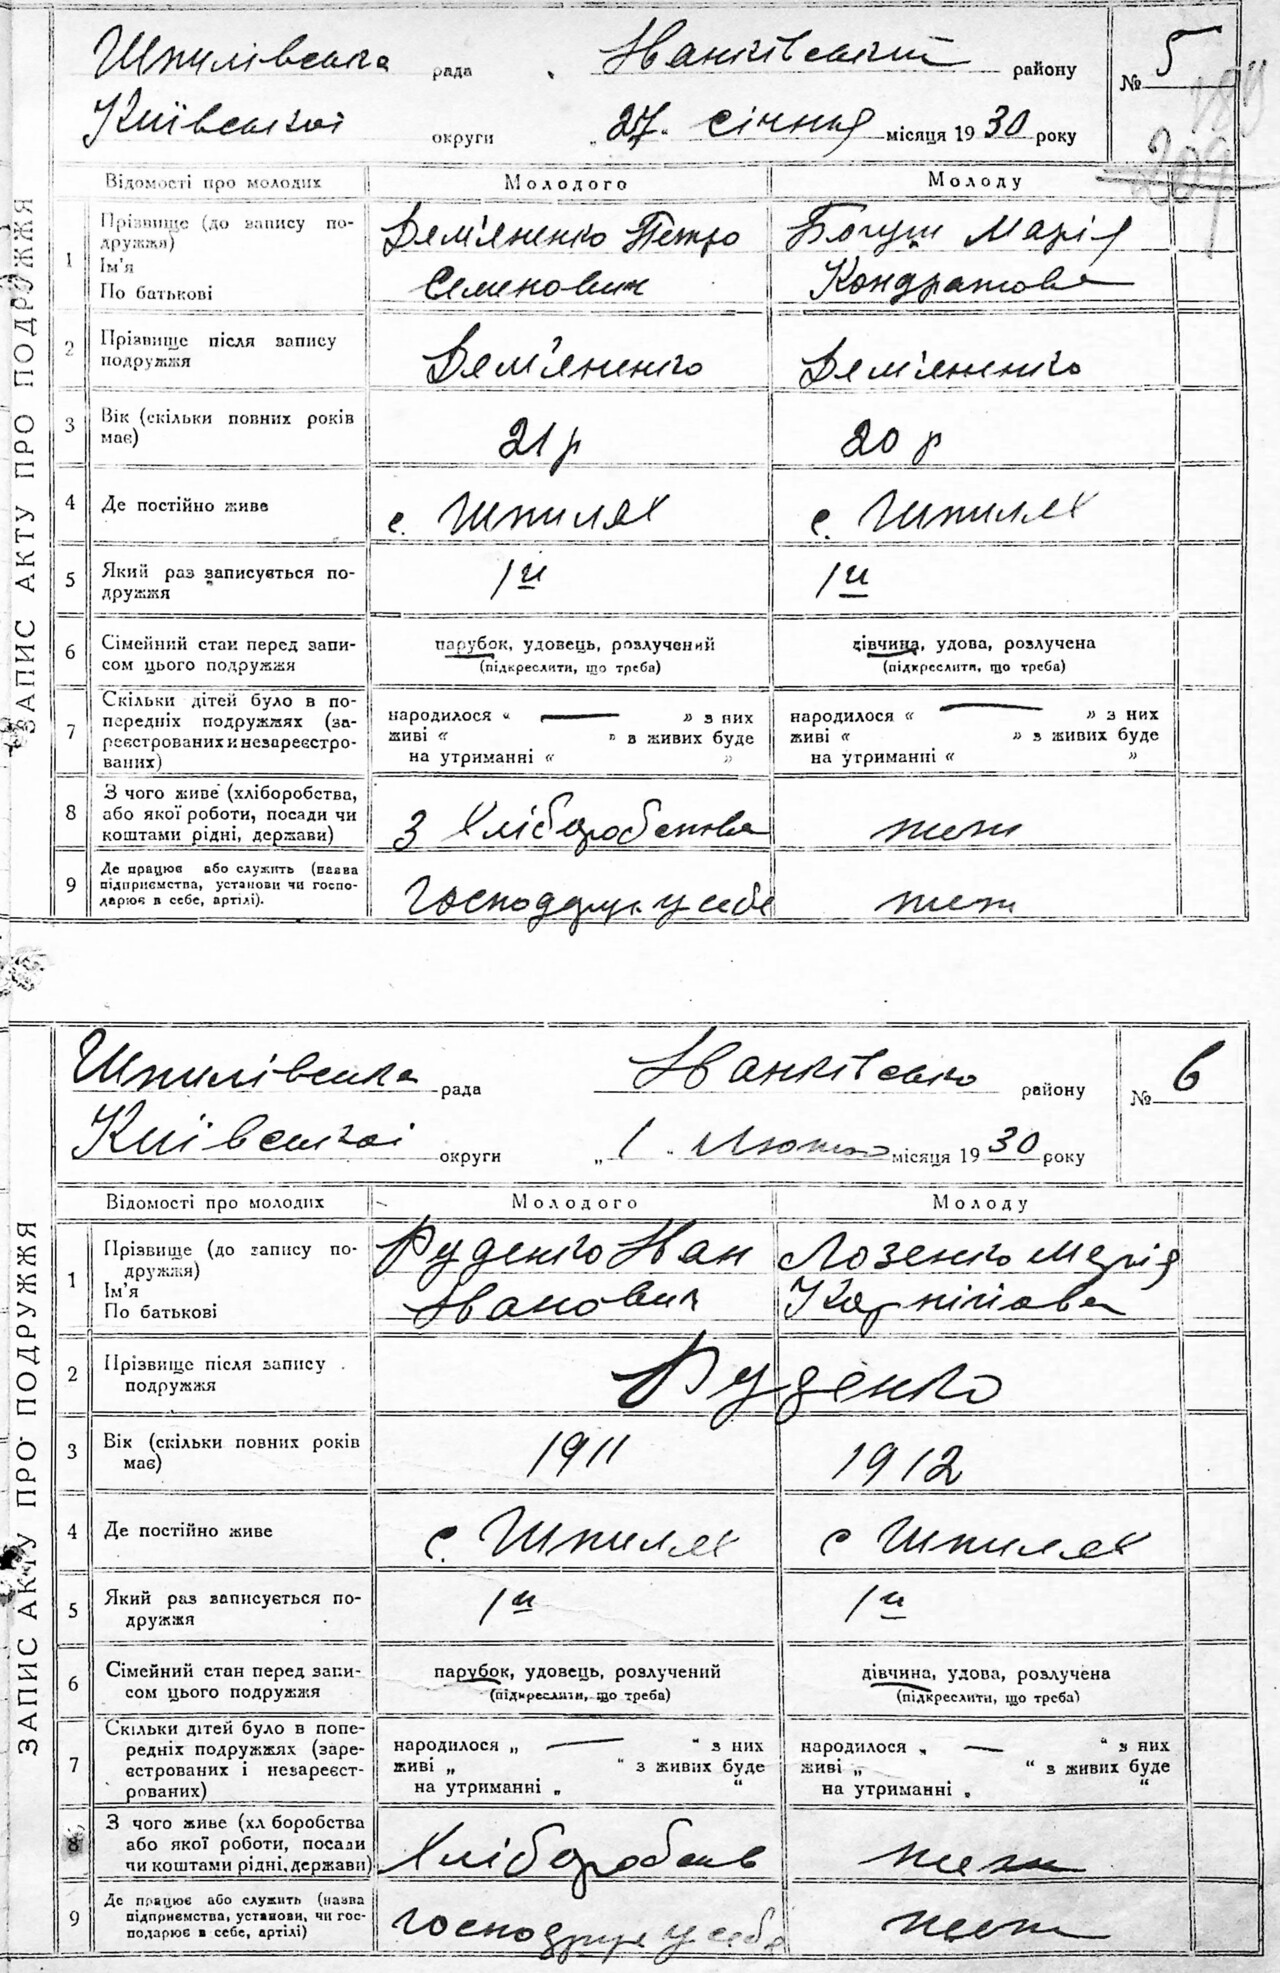 ЗАПИС АКТУ ПРО ПОДРУЖЖЯ
Шпилівська рада Іванківський району № 5
Київської округи „27" січня місяця 1930 року
189
209
Відомості про молодих Молодого Молоду
1 Прізвище (до запису по-
дружжя)
Ім'я
По батькові
Дем'яненко Петро
Семенович
Богуш Марія
Кондратова
2 Прізвище після запису
подружжя
Дем'яненко Дем'яненко
3 Вік (скільки повних років
має)
21 р 20 р
4 Де постійно живе с. Шпилях с. Шпилях
5 Який раз записується по-
дружжя
1й 1й
6 Сімейний стан перед запи-
сом цього подружжя
парубок, удовець, розлучений
(підкреслити, що треба)
дівчина, удова, розлучена
(підкреслити, що треба)
7 Скільки дітей було в по-
передніх подружжях (за-
реєстрованих и незареєстро-
ваних)
народилося “ — ” з них
живі “ ” з живих буде
на утриманні “ ”
народилося “ — ” з них
живі “ ” з живих буде
на утриманні “ ”
8 З чого живе (хліборобства,
або якої роботи, посади чи
коштами рідні, держави)
З хліборобства теж
9 Де працює або служить (назва
підприємства, установи чи госпо-
дарює в себе, артілі).
Господарує у себе теж
ЗАПИС АКТУ ПРО ПОДРУЖЖЯ
Шпилівська рада Іванківсько району № 6
Київської округи „1" Лютого місяця 1930 року
Відомості про молодих Молодого Молоду
1 Прізвище (до запису по-
дружжя)
Ім'я
По батькові
Руденко Іван
Іванович
Лозенко Марія
Корнійова
2 Прізвище після запису
подружжя
Руденко
3 Вік (скільки повних років
має)
1911 1912
4 Де постійно живе с. Шпилях с Шпилях
5 Який раз записується по-
дружжя
1й 1й
6 Сімейний стан перед запи-
сом цього подружжя
парубок, удовець, розлучений
(підкреслити, що треба)
дівчина, удова, розлучена
(підкреслити, що треба)
7 Скільки дітей було в попе-
редніх подружжях (заре-
єстрованих і незареєст-
рованих)
народилося „ — “ з них
живі „ “ з живих буде
на утриманні „ “
народилося „ — “ з них
живі „ “ з живих буде
на утриманні „ “
8 З чого живе (хл боробства
або якої роботи, посади
чи коштами рідні, держави)
Хліборобств теж
9 Де працює або служить (назва
підприємства, установи, чи гос-
подарює в себе, артілі)
господарує у себе теж